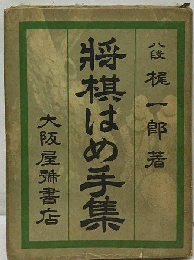 八段 梶一郎著
将棋はめ手集
大阪屋號書店